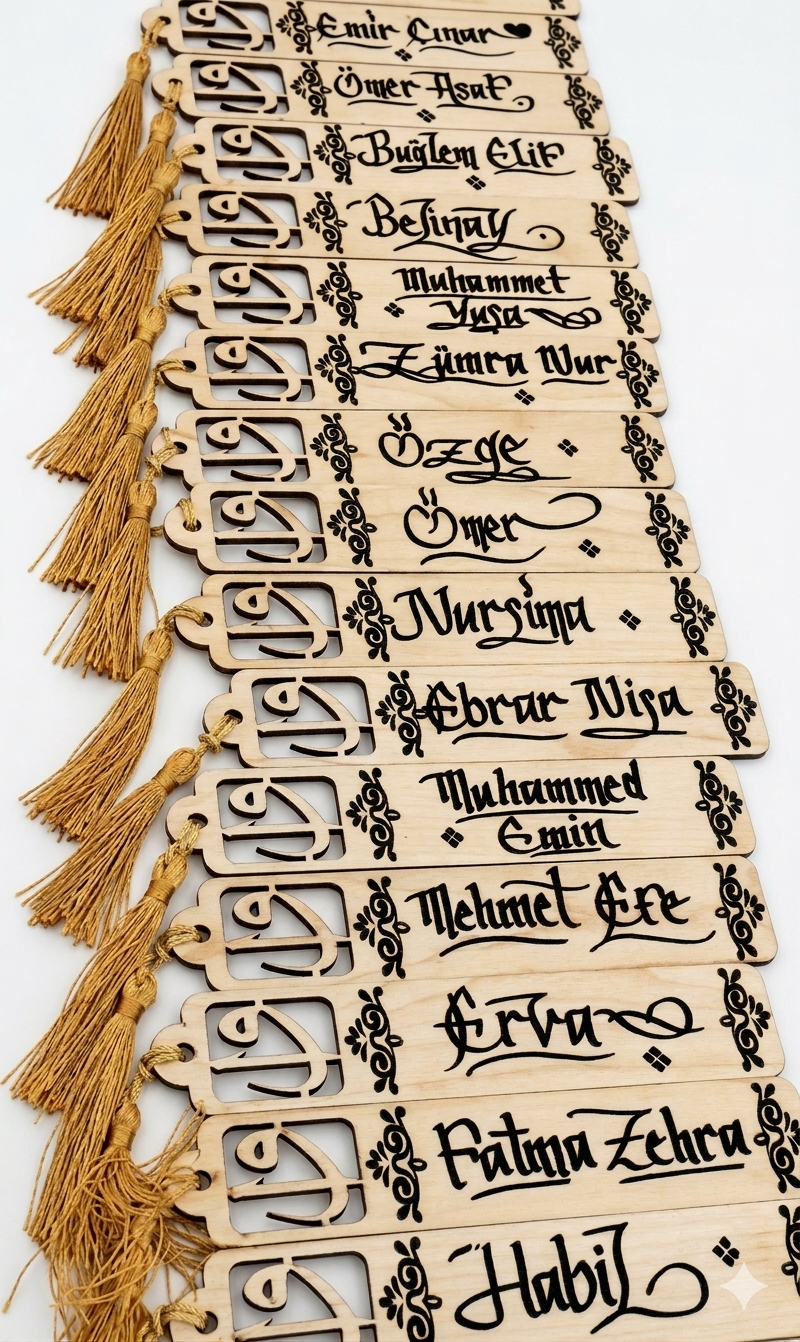 Emir Çınar
Ömer Asaf
Buğlem Elif
Belinay
Muhammet
Yuşa
Zümra Nur
Özge
Ömer
Nursima
Ebrar Nisa
Muhammed
Emin
Mehmet Efe
Erva
Fatma Zehra
Habil